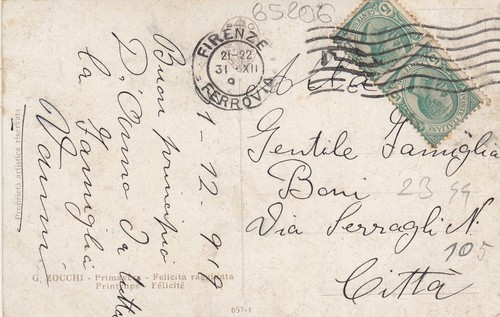 65206
FIRENZE
21-22
31 XII
FERROVIA
Alla
Gentile Famiglia
Boni
Via Serragli N.
105
Città
23 99
1-12-919
Buon principio
D'Anno Da tutta
la Famiglia
Vanni
Proprietà artistica riservata
G. ZOCCHI - Primavera - Felicità raggiunta
Printemps - Félicité
657-1